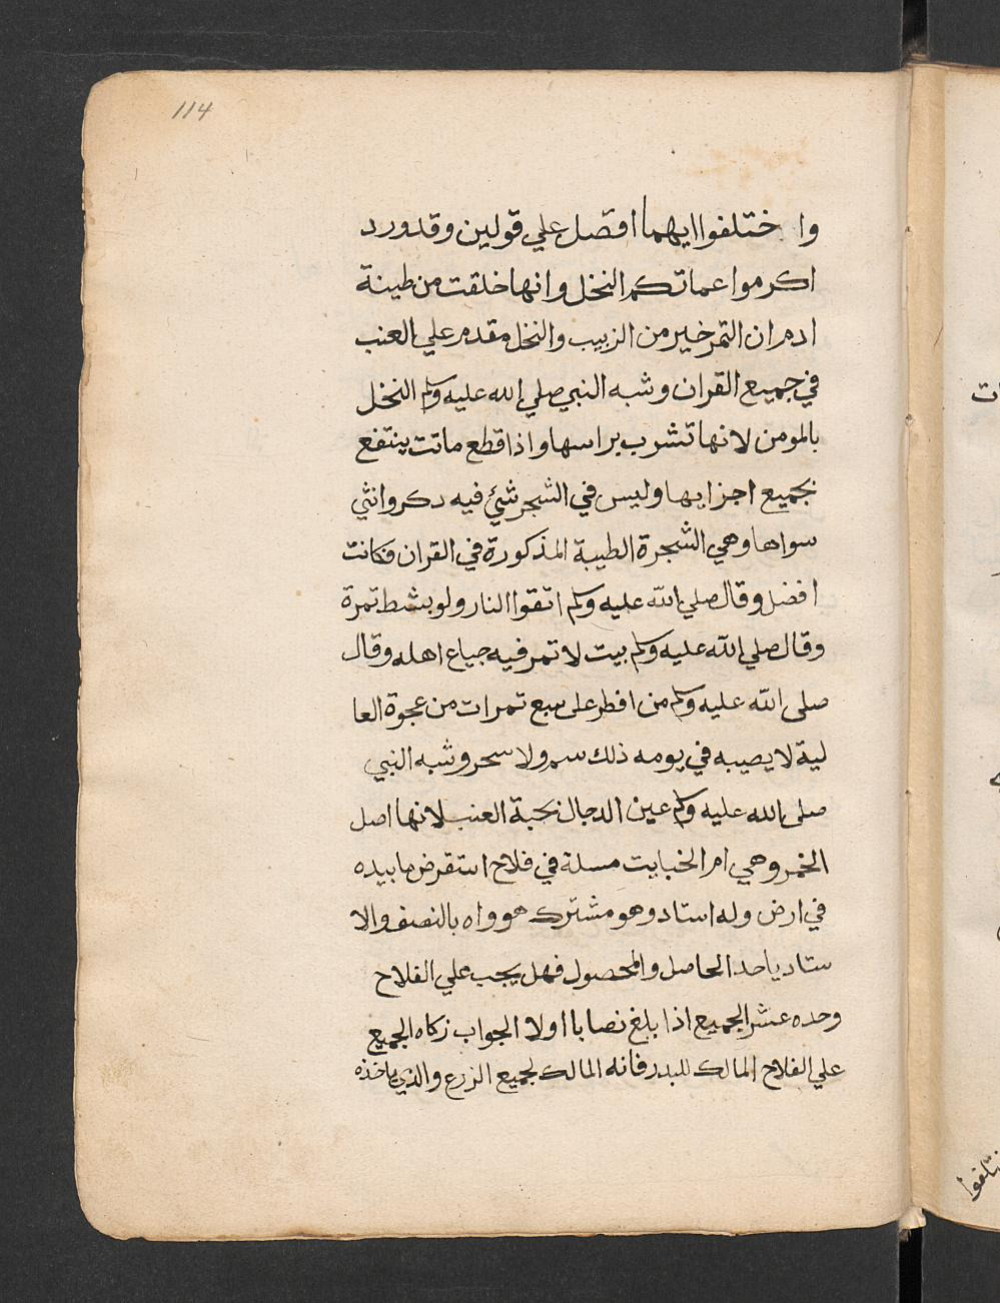 114
وا ختلفوا ايهما افضل علي قولين وقد ورد
اكرموا عماتكم النخل وانها خلقت من طينة
ادم ان التمر خير من الزبيب والنخل مقدم علي العنب
في جميع القران وشبه النبي صلي الله عليه وسلم النخل
بالمومن لانها تشرب براسها واذا قطع ماتت ينتفع
بجميع اجزايها وليس في الشجر شئ فيه دكر وانثي
سواها وهي الشجرة الطيبة المذكورة في القران فكانت
افضل وقال صلي الله عليه وسلم اتقوا النار ولو بشط تمرة
وقال صلي الله عليه وسلم بيت لا تمر فيه جياع اهله وقال
صلى الله عليه وسلم من افطر على سبع تمرات من عجوة العا
لية لا يصيبه في يومه ذلك سم ولا سحر وشبه النبي
صلى الله عليه وسلم عين الدجال بحبة العنب لانها اصل
الخمر وهي ام الخبايت مسلة في فلاح استقرض ما بيده
في ارض وله استاد وهو مشترك هو واه بالنصف والا
ستاد ياحد الحاصل والمحصول فهل يجب علي الفلاح
وحده عشر الجميع اذا بلغ نصابا اولا الجواب زكاه الجميع
علي الفلاح المالك للبدر فانه المالك لجميع الزرع والذي ياخذه
ات
ختلفوا